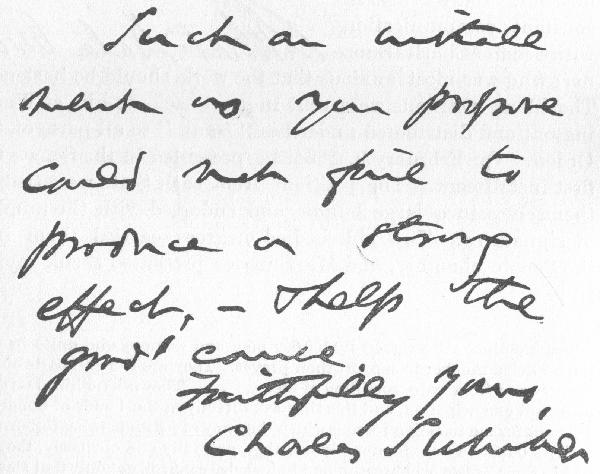 Such a
ment as you propose
could not fail to
produce a strong
effect, – & help the
good cause.
Faithfully Yours,
Charles Sumner